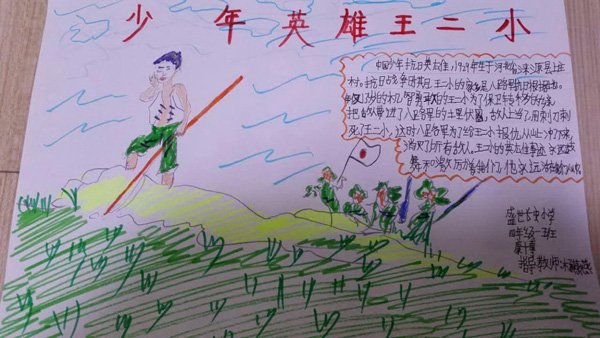 少年英雄王二小
中国少年抗日英雄,1929年生于河北省涞源县上庄
村。抗日战争时期王二小的家乡是八路军抗日根据地。
年仅13岁的机智勇敢的王二小为了保卫转移的乡亲
把敌人带进了八路军的埋伏圈,敌人上当了用刺刀刺
死了王二小,这时八路军为了给王二小报仇从山上冲下来,
消灭了所有敌人。王二小的英雄事迹永远
舞和激励着我们,他永远活在
盛世长安小学
四年级一班
指导教师: